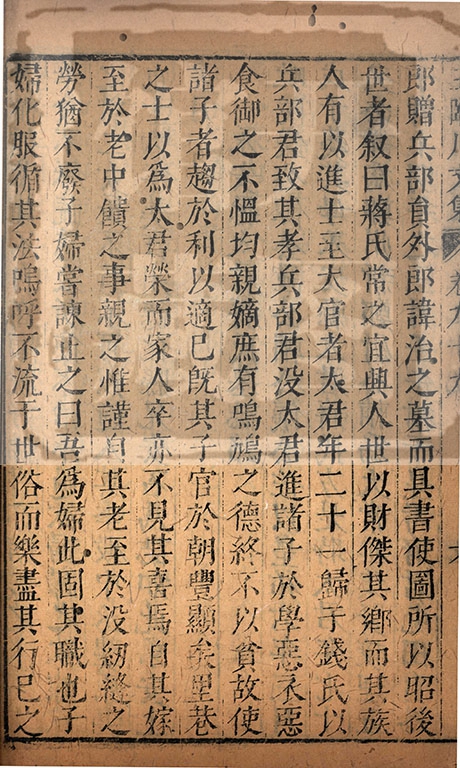 王臨川文集 卷九十九 六
郎贈兵部員外郎諱治之墓而具書使圖所以昭後
世者叙曰蔣氏常之宜興人世以財傑其鄉而其族
人有以進士至大官者太君年二十一歸于錢氏以
兵部君致其孝兵部君没太君進諸子於學惡衣惡
食御之不慍均親嫡庶有鳲鳩之德終不以貧故使
諸子者趨於利以適己旣其子官於朝豐顯矣里巷
之士以爲太君榮而家人卒亦不見其喜焉自其嫁
至於老中饋之事親之惟謹自其老至於没紉縫之
勞猶不廢子婦嘗諫止之曰吾爲婦此固其職也子
婦化服循其法嗚呼不流于世俗而樂盡其行已之